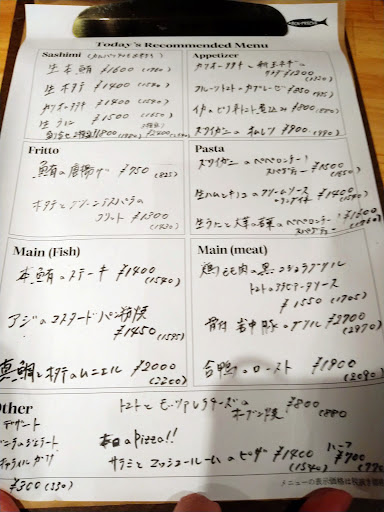 Today's Recommended Menu
Sashimi (カルパッチョもお作り)
生本鮪 ¥1600 (1760)
生ホタテ ¥1400 (1540)
カツオータタキ ¥1400 (1540)
生うに ¥1500
Appetizer
カツオータタキと新玉ネギ
サラダ ¥1200
フルーツトマトのカプレーゼ ¥850 (935)
トマト煮込み ¥800 (880)
ズワイガニのオムレツ ¥900 (990)
Fritto
鮪の唐揚げ ¥750 (825)
ホタテとグリーンアスパラの
フリット ¥1300
(1430)
Pasta
ズワイガニのペペロンチーノ
スパゲティー ¥1500
(1650)
生ハムときのこのクリームソース
¥1400
(1540)
生うにと大葉のペペロンチーノ
スパゲティー ¥1600
(1760)
Main (Fish)
本鮪のステーキ ¥1400
(1540)
アジのマスタードパン粉焼
¥1450
(1595)
真鯛とホタテのムニエル ¥2000
(2200)
Main (meat)
鶏もも肉の黒コショウグリル
トマトのアラビアータソース
¥1550 (1705)
骨付豚のグリル ¥2700
(2970)
合鴨のロースト ¥1900
(2090)
Other
デザート
¥300 (330)
トマトとモッツァレラチーズの
オーブン焼 ¥800
(880)
本日のpizza!!
サラミとマッシュルームのピザ ¥1400
(1540)
ハーフ
¥700
(770)
メニューの表示価格は税抜き価格